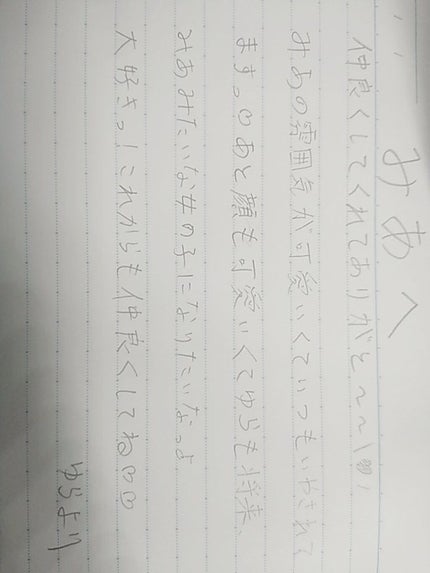 みあへ
仲良くしてくれてありがと〜〜\(^^)/
みあの雰囲気が可愛いくていつもいやされて
ます。♡あと顔も可愛いくてゆらも将来、
みあみたいな女の子になりたいなっよ
大好きっ！これからも仲良くしてね♡♡
ゆらより